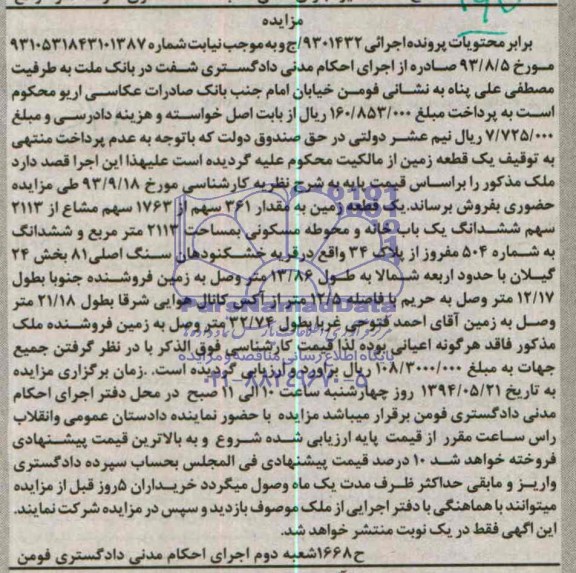 مزایده
برابر محتویات پرونده اجرائی ۹۳۰۱۴۳۲/ج و به موجب نیابت شماره ۹۳۱۰۵۳۱۸۴۳۱۰۱۳۸۷
مورخ ۹۳/۸/۵ صادره از اجرای احکام مدنی دادگستری شفت در بانک ملت به طرفیت
مصطفی علی پناه به نشانی فومن خیابان امام جنب بانک صادرات عکاسی اریو محکوم
است به پرداخت مبلغ ۱۶۰/۸۵۳/۰۰۰ ریال از بابت اصل خواسته و هزینه دادرسی و مبلغ
۷/۷۲۵/۰۰۰ ریال نیم عشر دولتی در حق صندوق دولت که باتوجه به عدم پرداخت منتهی
به توقیف یک قطعه زمین از مالکیت محکوم علیه گردیده است علیهذا این اجرا قصد دارد
ملک مذکور را براساس قیمت پایه به شرح نظریه کارشناسی مورخ ۹۳/۹/۱۸ طی مزایده
حضوری بفروش برساند.یک قطعه زمین به مقدار ۳۶۱ سهم از ۱۷۶۳ سهم مشاع از ۲۱۱۳
سهم ششدانگ یک باب خانه و محوطه مسکونی بمساحت ۲۱۱۳ متر مربع و ششدانگ
به شماره ۵۰۴ مفروز از پلاک ۳۴ واقع درقریه خشکنودهان سنگ اصلی۸۱ بخش ۲۴
گیلان با حدود اربعه شمالا به طول ۱۳/۸۶ متر وصل به زمین فروشنده جنوبا بطول
۱۲/۱۷ متر وصل به حریم با فاصله ۱۲/۵ متر از آکس کانال هوایی شرقا بطول ۲۱/۱۸ متر
وصل به زمین آقای احمد فتوحی غربا بطول ۳۲/۷۴ متر وصل به زمین فروشنده ملک
مذکور فاقد هرگونه اعیانی بوده لذا قیمت کارشناسی فوق الذکر با در نظر گرفتن جمیع
جهات به مبلغ ۱۰۸/۳۰۰۰/۰۰۰ ریال برآورد و ارزیابی گردیده است. .زمان برگزاری مزایده
به تاریخ ۱۳۹۴/۰۵/۲۱ روز چهارشنبه ساعت ۱۰ الی ۱۱ صبح در محل دفتر اجرای احکام
مدنی دادگستری فومن برقرار میباشد مزایده با حضور نماینده دادستان عمومی وانقلاب
راس ساعت مقرر از قیمت پایه ارزیابی شده شروع و به بالاترین قیمت پیشنهادی
فروخته خواهد شد ۱۰ درصد قیمت پیشنهادی فی المجلس بحساب سپرده دادگستری
واریز و مابقی حداکثر ظرف مدت یک ماه وصول میگردد خریداران ۵روز قبل از مزایده
میتوانند با هماهنگی با دفتر اجرایی از ملک موصوف بازدید و سپس در مزایده شرکت نمایند.
این آگهی فقط در یک نوبت منتشر خواهد شد.
ح۱۶۶۸شعبه دوم اجرای احکام مدنی دادگستری فومن
ParsNamadData
پایگاه اطلاع رسانی مناقصه و مزایده
۰۲۱-۸۸۳۴۹۶۷۰-۵